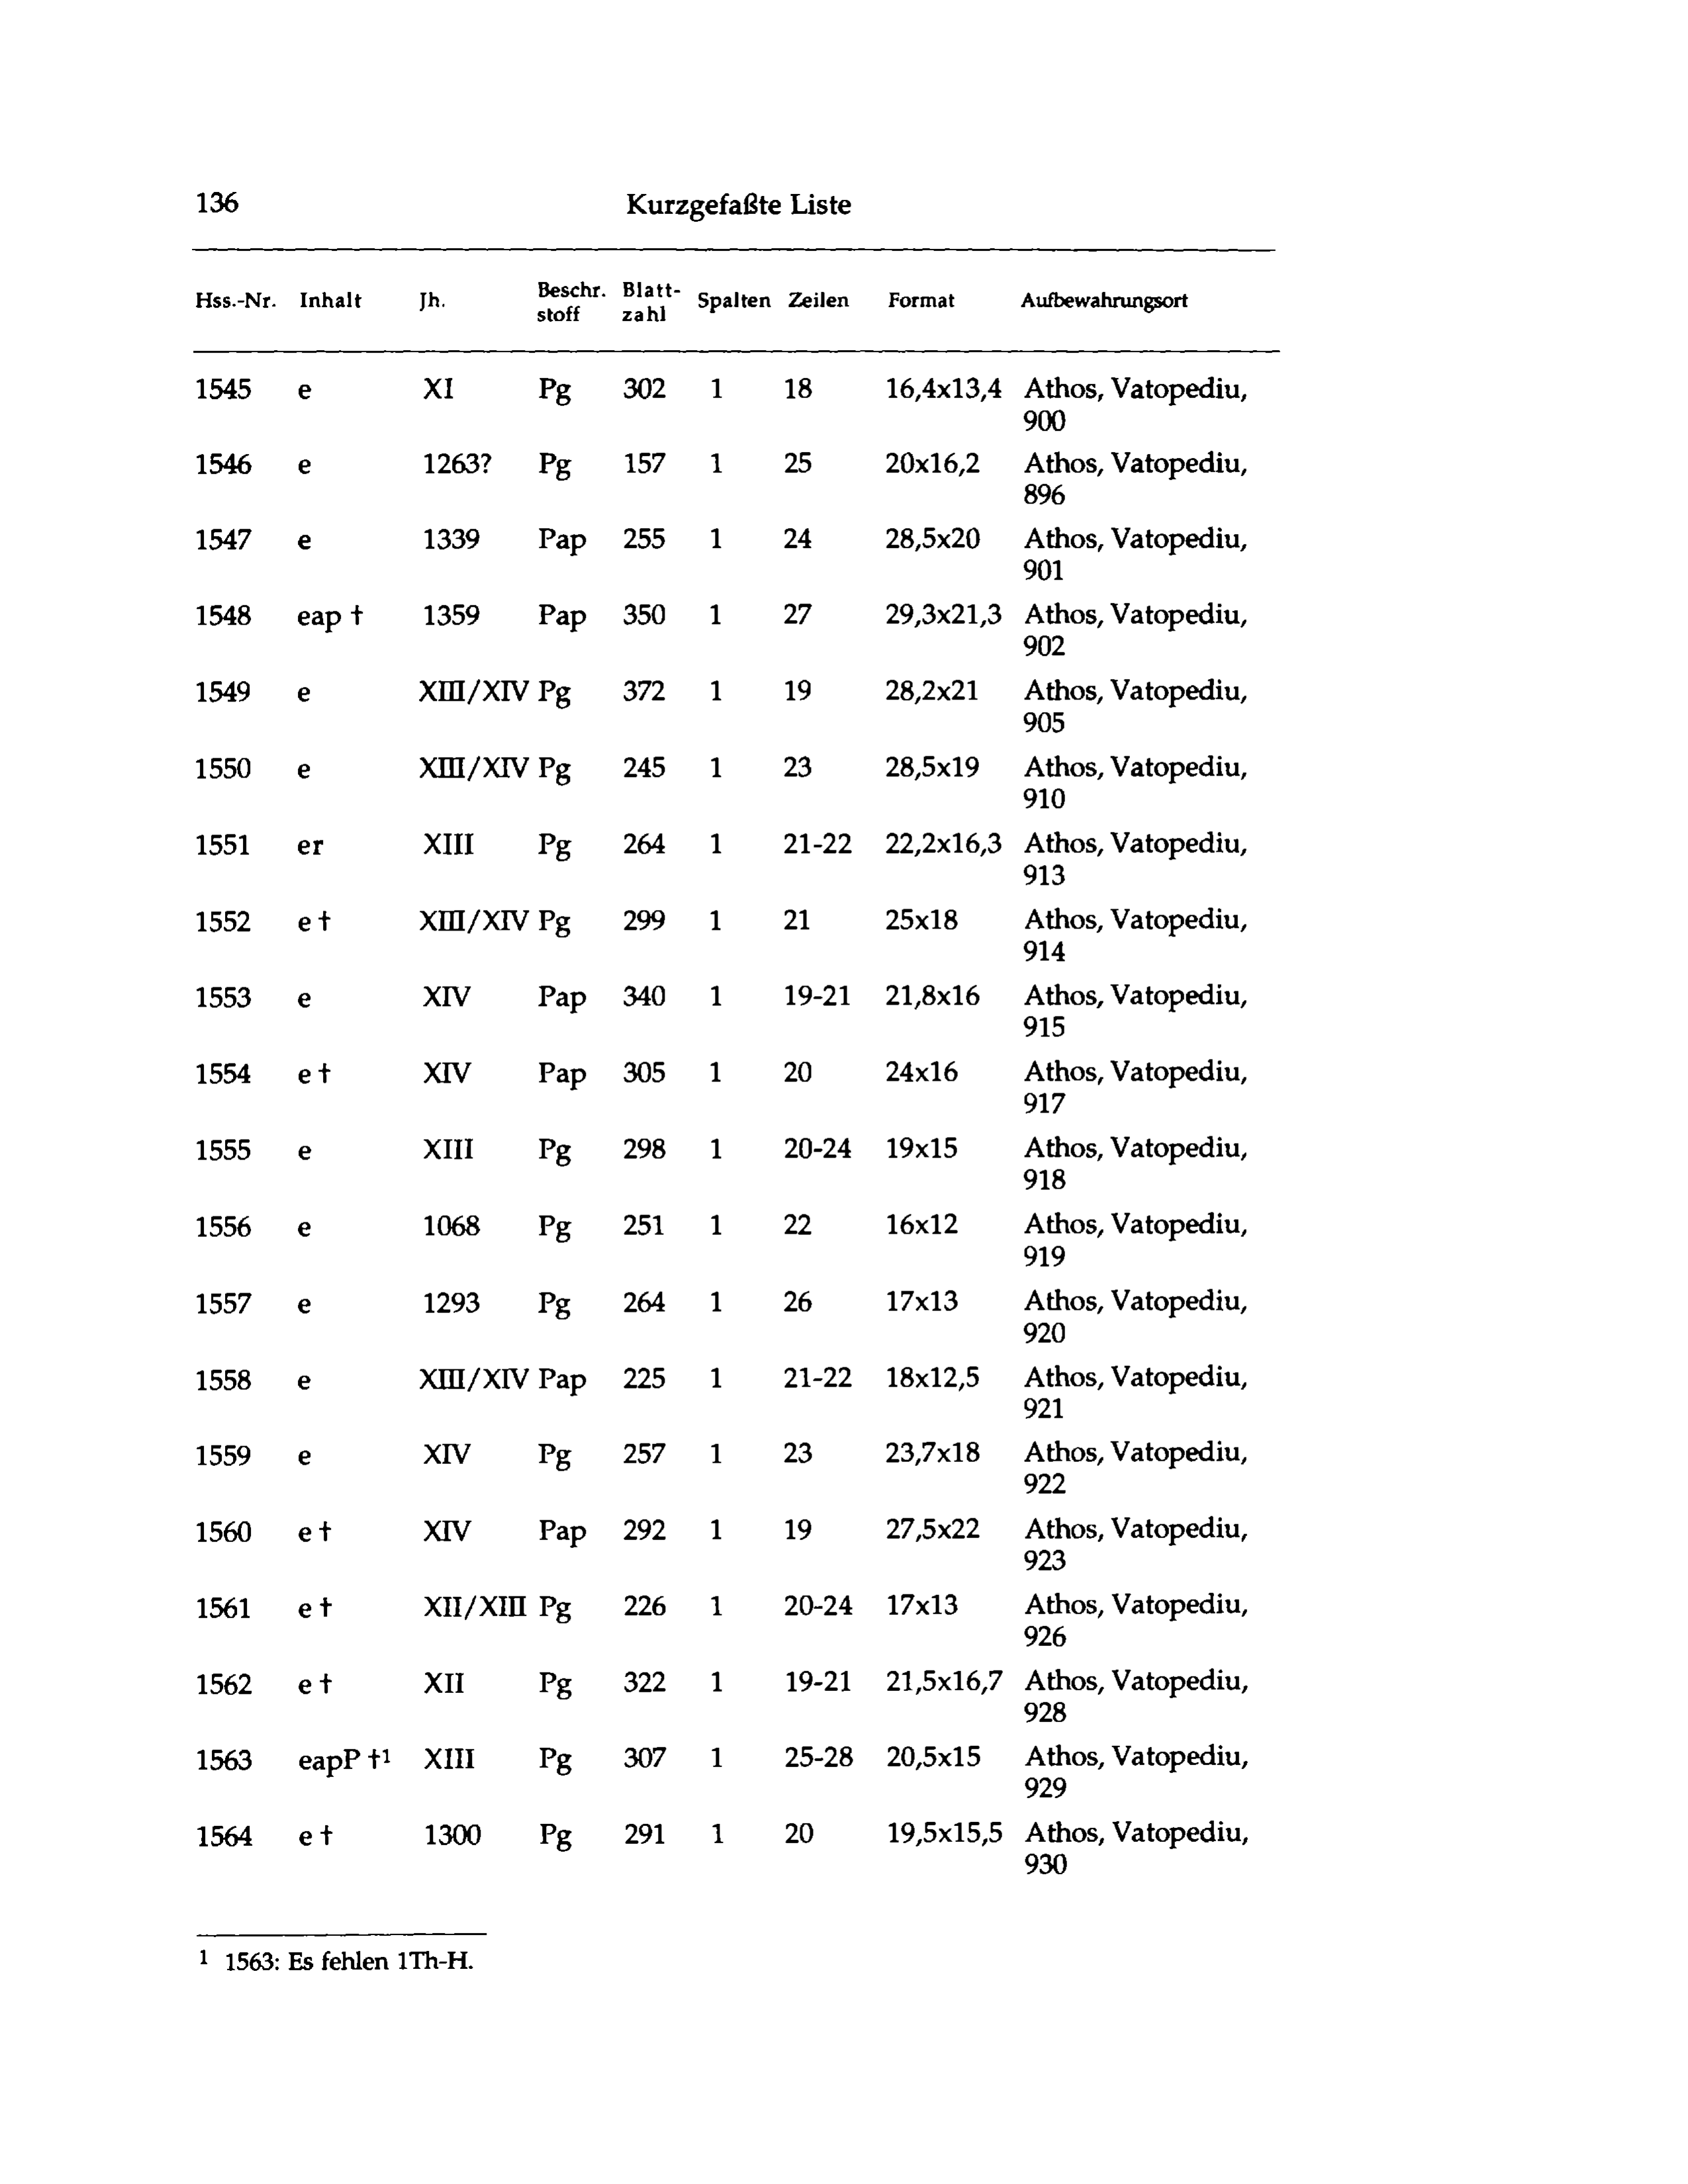 136 Kurzgefaßte Liste
Hss.-Nr. Inhalt Jh. Beschr.stoff Blattzahl Spalten Zeilen Format Aufbewahrungsort
1545 e XI Pg 302 1 18 16,4x13,4 Athos, Vatopediu,
900
1546 e 1263? Pg 157 1 25 20x16,2 Athos, Vatopediu,
896
1547 e 1339 Pap 255 1 24 28,5x20 Athos, Vatopediu,
901
1548 eap † 1359 Pap 350 1 27 29,3x21,3 Athos, Vatopediu,
902
1549 e XIII/XIV Pg 372 1 19 28,2x21 Athos, Vatopediu,
905
1550 e XIII/XIV Pg 245 1 23 28,5x19 Athos, Vatopediu,
910
1551 er XIII Pg 264 1 21-22 22,2x16,3 Athos, Vatopediu,
913
1552 e † XIII/XIV Pg 299 1 21 25x18 Athos, Vatopediu,
914
1553 e XIV Pap 340 1 19-21 21,8x16 Athos, Vatopediu,
915
1554 e † XIV Pap 305 1 20 24x16 Athos, Vatopediu,
917
1555 e XIII Pg 298 1 20-24 19x15 Athos, Vatopediu,
918
1556 e 1068 Pg 251 1 22 16x12 Athos, Vatopediu,
919
1557 e 1293 Pg 264 1 26 17x13 Athos, Vatopediu,
920
1558 e XIII/XIV Pap 225 1 21-22 18x12,5 Athos, Vatopediu,
921
1559 e XIV Pg 257 1 23 23,7x18 Athos, Vatopediu,
922
1560 e † XIV Pap 292 1 19 27,5x22 Athos, Vatopediu,
923
1561 e † XII/XIII Pg 226 1 20-24 17x13 Athos, Vatopediu,
926
1562 e † XII Pg 322 1 19-21 21,5x16,7 Athos, Vatopediu,
928
1563 eapP †¹ XIII Pg 307 1 25-28 20,5x15 Athos, Vatopediu,
929
1564 e † 1300 Pg 291 1 20 19,5x15,5 Athos, Vatopediu,
930
¹ 1563: Es fehlen 1Th-H.